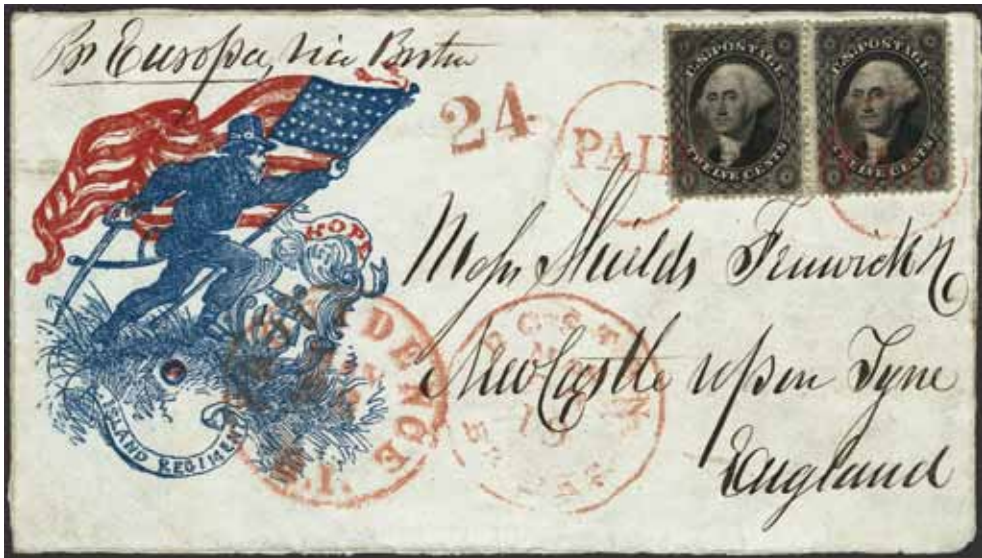 Pr Europa, via Boston
24
PAID
U.S. POSTAGE
TWELVE CENTS
U.S. POSTAGE
TWELVE CENTS
HOPE
Mess Shields Fenwick
NewCastle upon Tyne
England
DENCE
R.I.
BOSTON
19
ISLAND REGIMENT